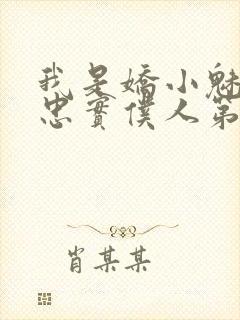 我是嬌小魅
忠實僕人第
肖某某